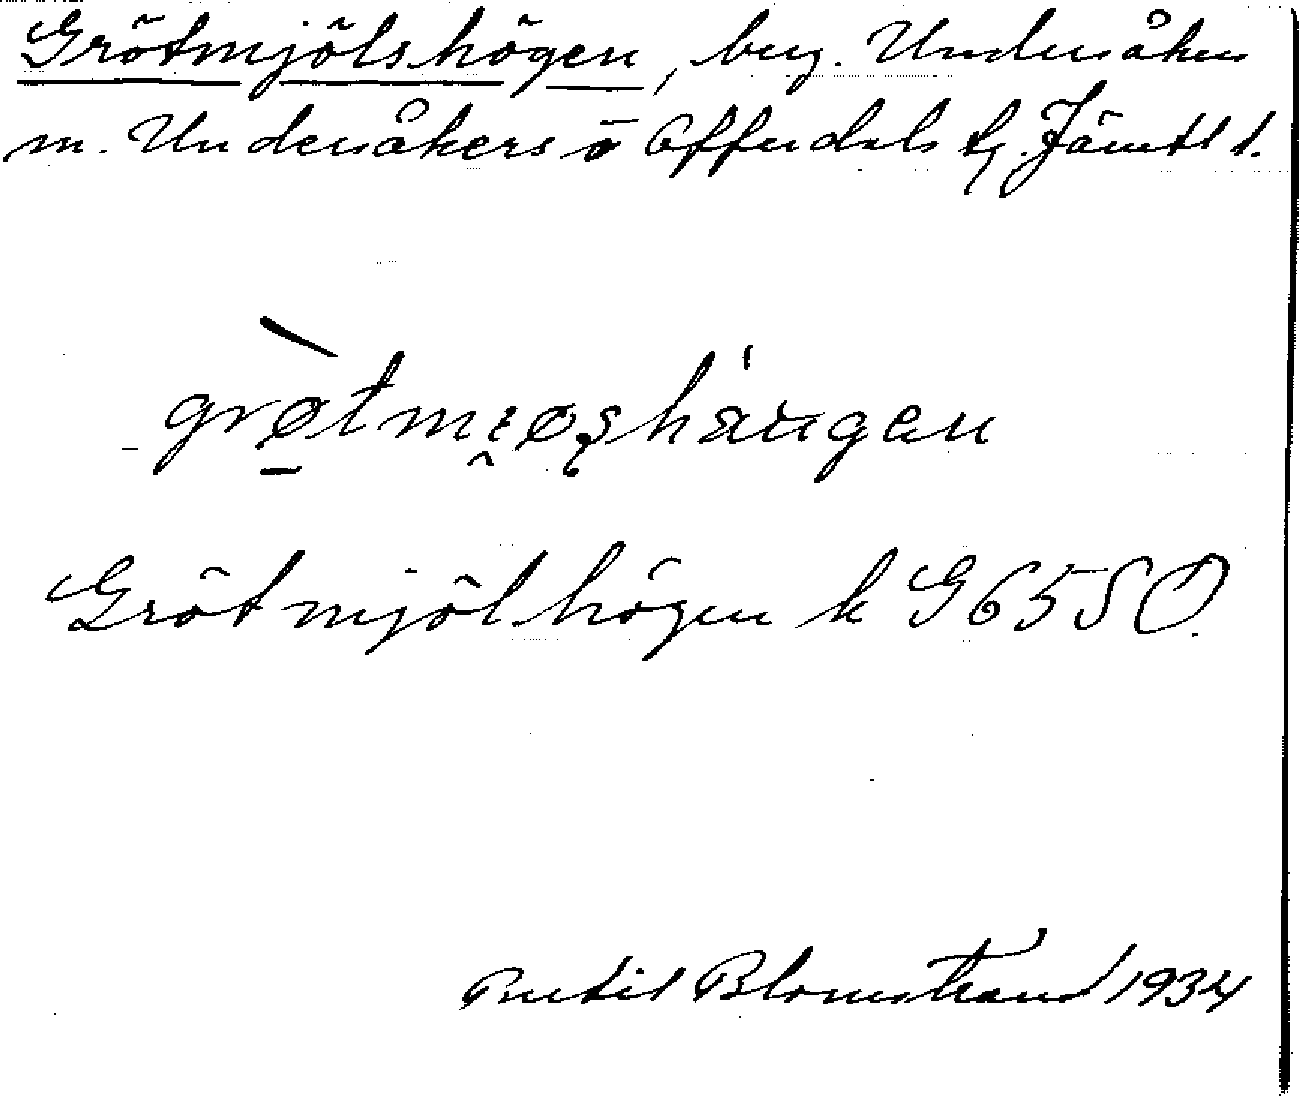 Grötmjölshögen, berg. Undersåker
m. Undersåkers o Offerdals tg. Jämtl l.
grøtmi̯øʂhäugen
Grötmjölhögen k G65SO.
Bertil Blomstrand 1934